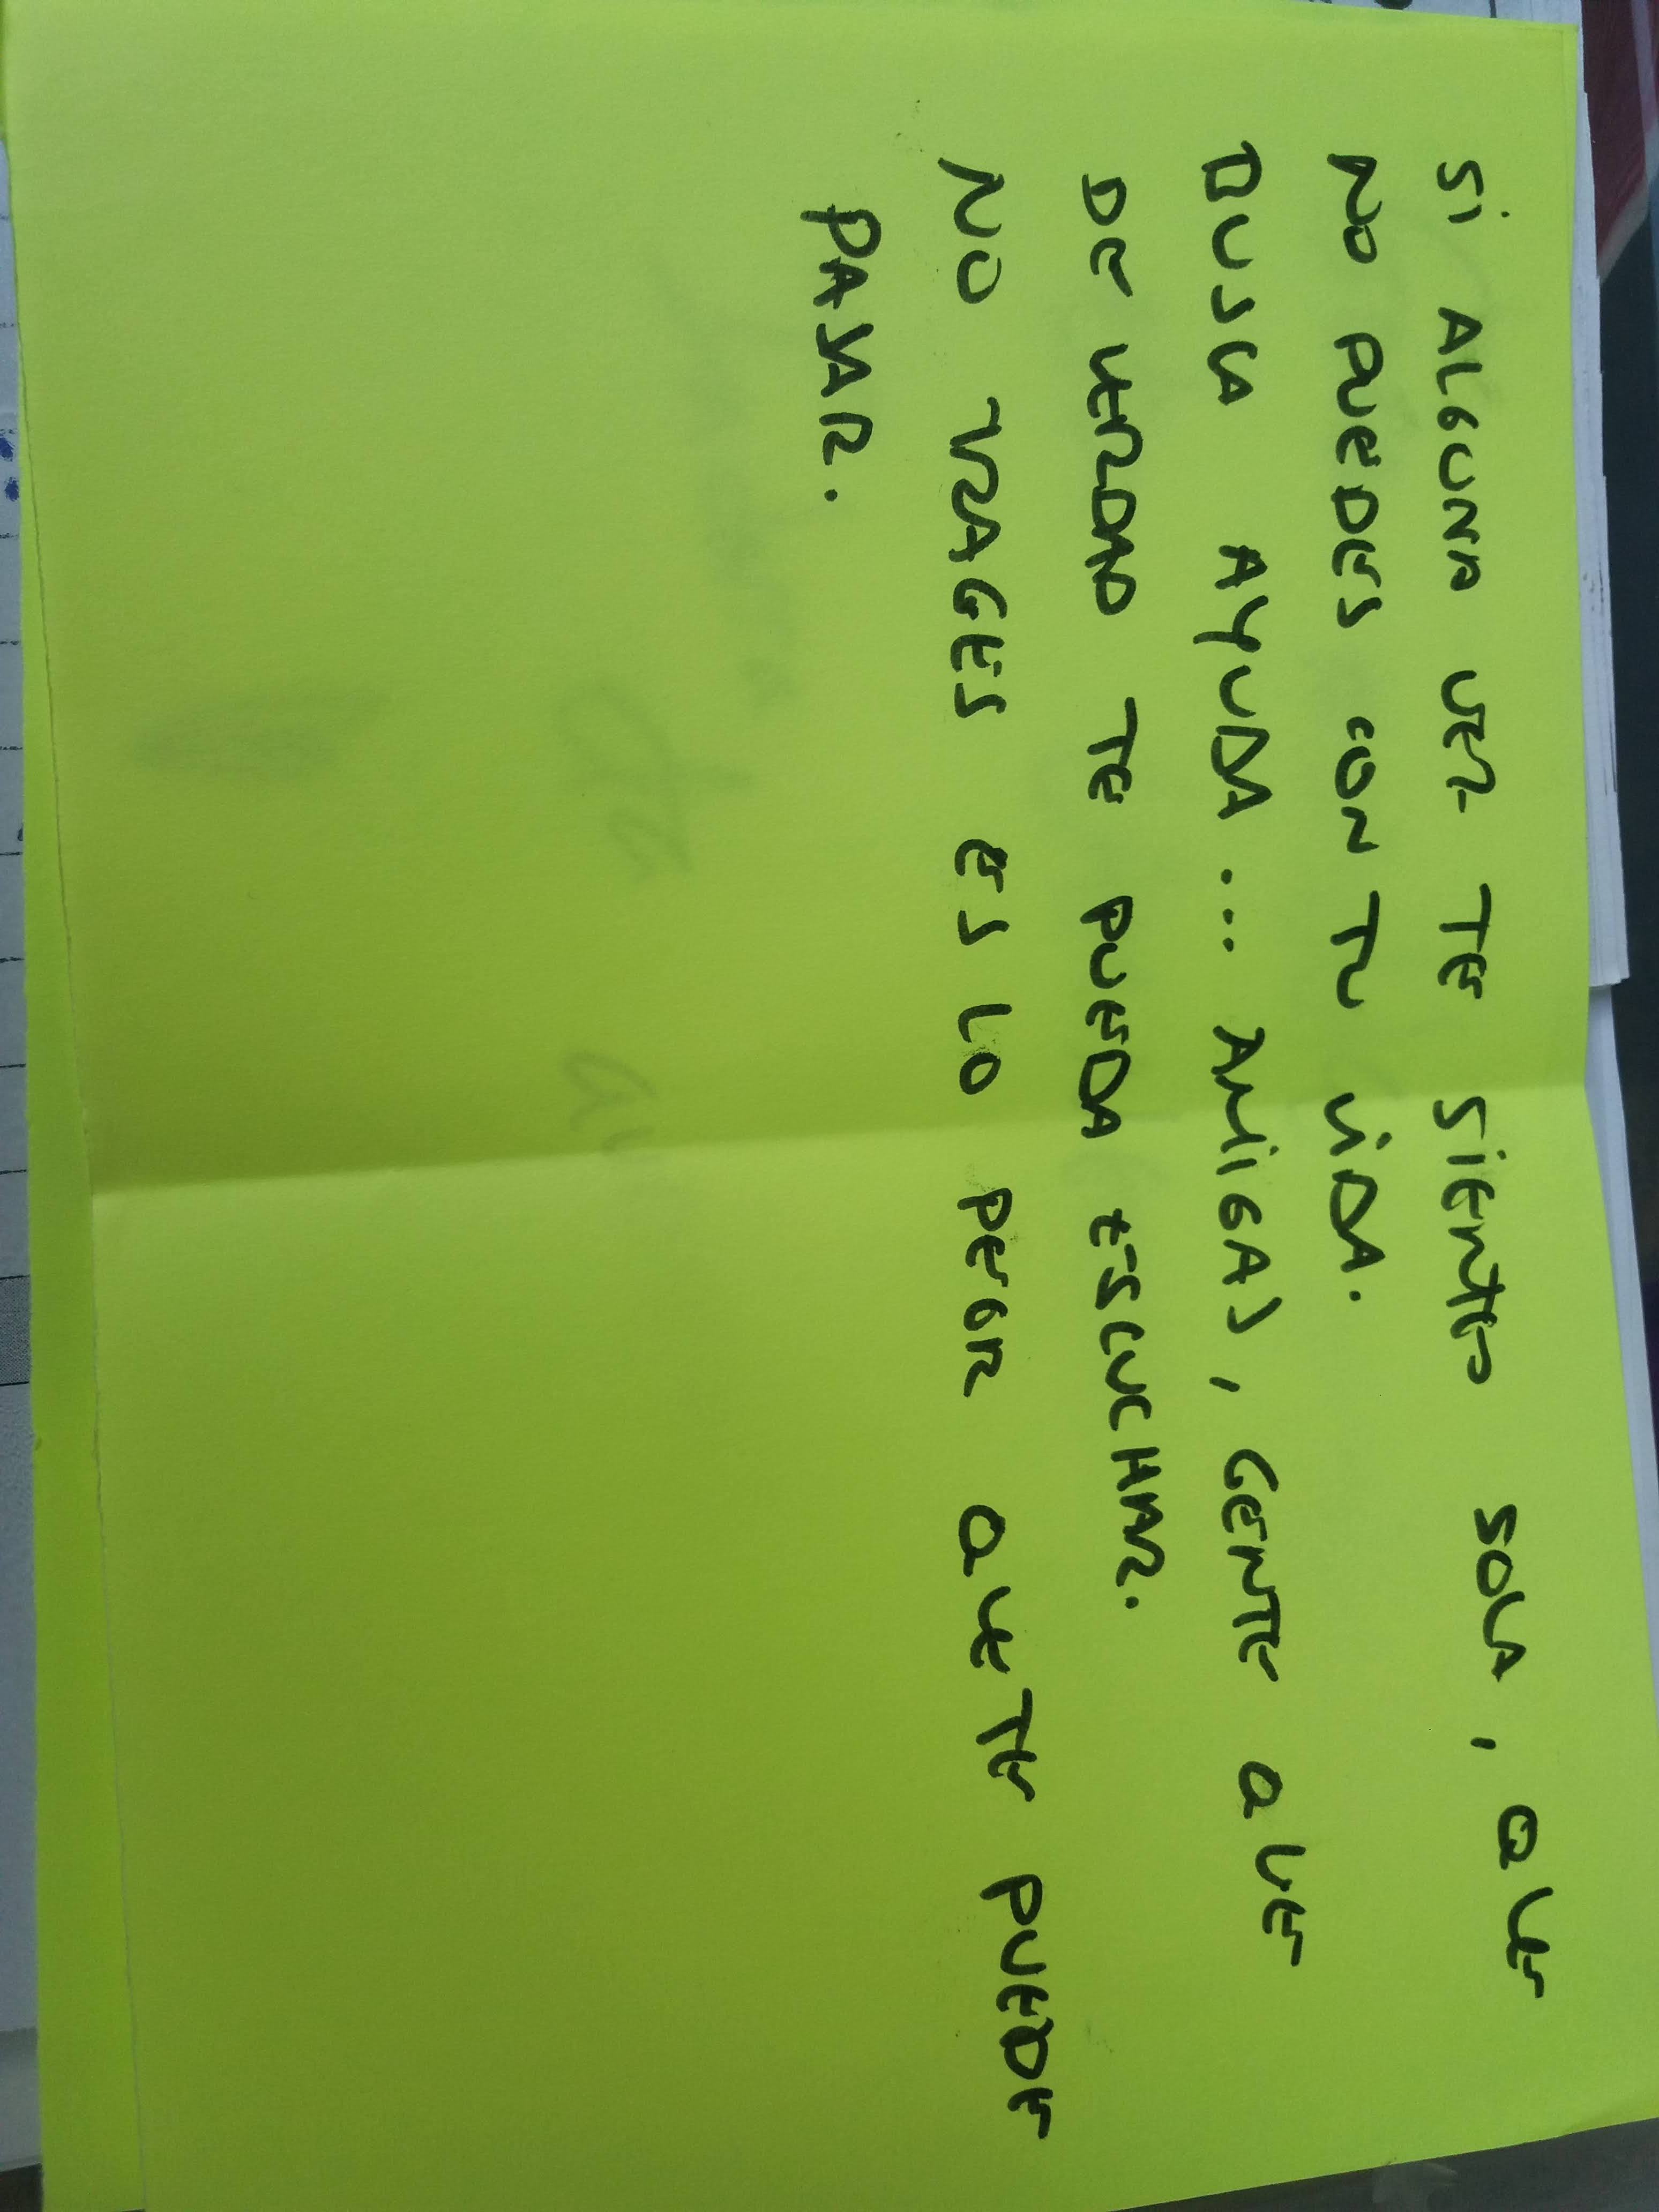 Si ALGUNA VEZ TE SIENTES SOLA, QUE
NO PUEDES CON TU VIDA.
BUSCA AYUDA... AMIGAS, GENTE QUE
DE VERDAD TE PUEDA ESCUCHAR.
NO TRAGES ES LO PEOR QUE TE PUEDE
PASAR.